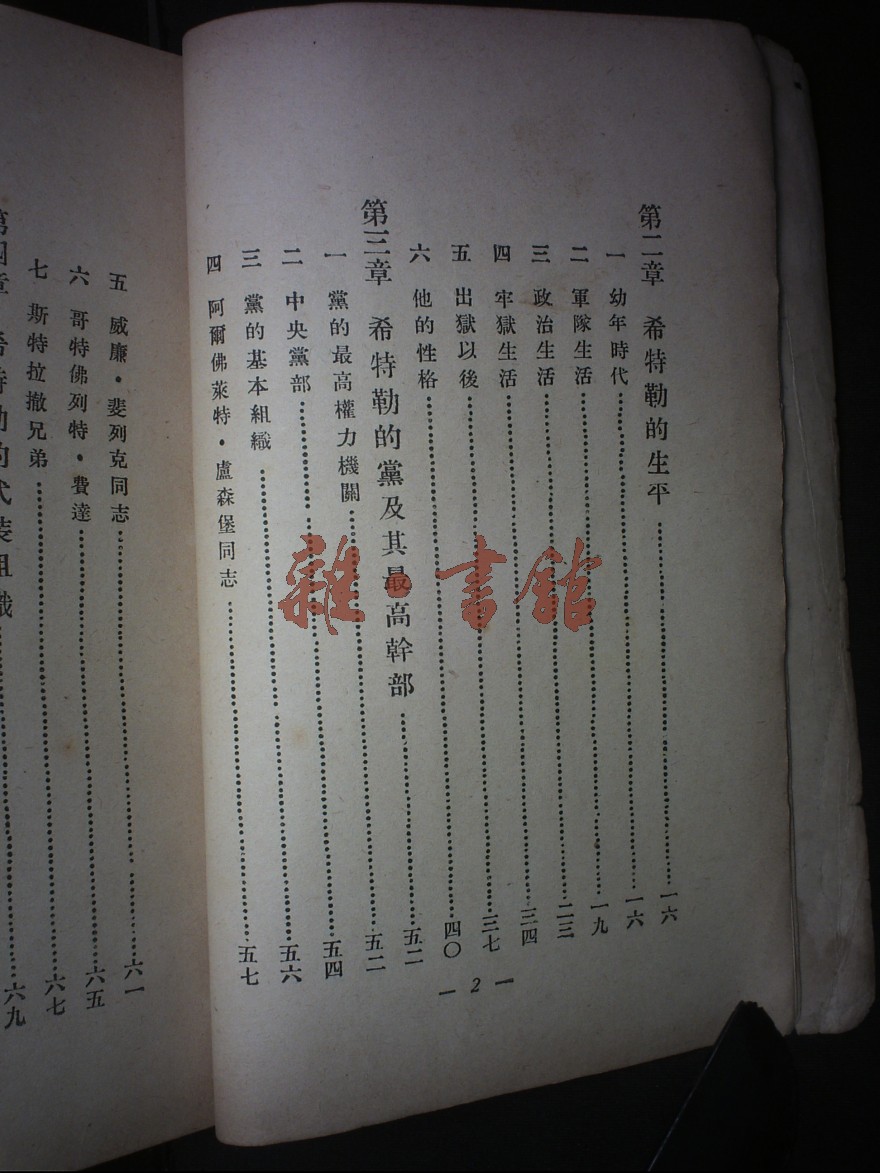 第二章 希特勒的生平……一六
一 幼年時代……一六
二 軍隊生活……一九
三 政治生活……二三
四 牢獄生活……三四
五 出獄以後……三七
六 他的性格……四〇
第三章 希特勒的黨及其最高幹部……五二
一 黨的最高權力機關……五二
二 中央黨部……五四
三 黨的基本組織……五六
四 阿爾佛萊特·盧森堡同志……五七
— 2 —
五 威廉·斐列克同志……六一
六 哥特佛列特·費達……六五
七 斯特拉撤兄弟……六七
第四章 希特勒的武裝組織……六九
雜·書館